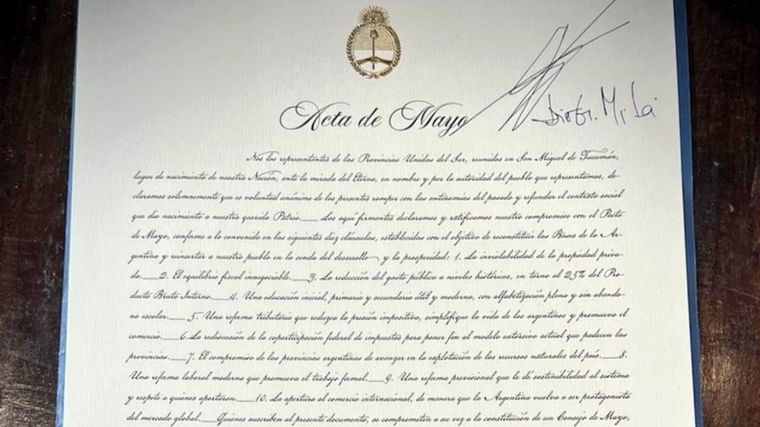 Acta de Mayo
Nos los representantes de las Provincias Unidas del Sur, reunidos en San Miguel de Tucumán,
lugar de nacimiento de nuestra Nación, ante la mirada del Eterno, en nombre y por la autoridad del pueblo que representamos, de-
claramos solemnemente que es voluntad unánime de los presentes romper con las antinomias del pasado y refundar el contrato social
que dio nacimiento a nuestra querida Patria. Los aquí firmantes declaramos y ratificamos nuestro compromiso con el Pacto
de Mayo, conforme a lo convenido en las siguientes diez cláusulas, establecidas con el objetivo de reconstituir las Bases de la Ar-
gentina y reinsertar a nuestro pueblo en la senda del desarrollo y la prosperidad: 1. La inviolabilidad de la propiedad priva-
da 2. El equilibrio fiscal innegociable. 3. La reducción del gasto público a niveles históricos, en torno al 25% del Pro-
ducto Bruto Interno. 4. Una educación inicial, primaria y secundaria útil y moderna, con alfabetización plena y sin abando-
no escolar. 5. Una reforma tributaria que reduzca la presión impositiva, simplifique la vida de los argentinos y promueva el
comercio. 6. La rediscusión de la coparticipación federal de impuestos para poner fin al modelo extorsivo actual que padecen las
provincias. 7. El compromiso de las provincias argentinas de avanzar en la explotación de los recursos naturales del país. 8.
Una reforma laboral moderna que promueva el trabajo formal. 9. Una reforma previsional que le dé sostenibilidad al sistema
y respeto a quienes aportaron. 10. La apertura al comercio internacional, de manera que la Argentina vuelva a ser protagonista
del mercado global. Quienes suscriben el presente documento, se comprometen a su vez a la constitución de un Consejo de Mayo,